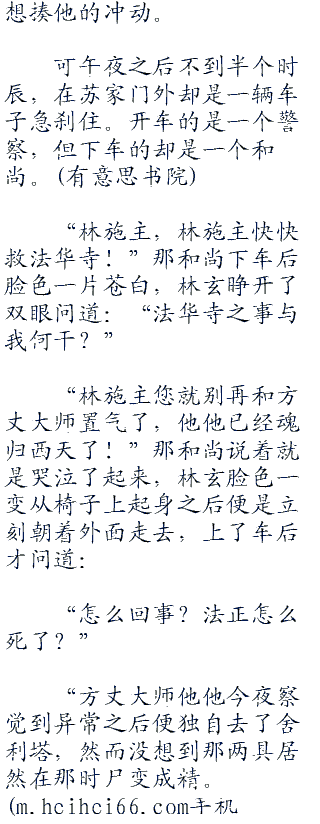 想揍他的冲动。
可午夜之后不到半个时
辰，在苏家门外却是一辆车
子急刹住。开车的是一个警
察，但下车的却是一个和
尚。(有意思书院)
“林施主，林施主快快
救法华寺！”那和尚下车后
脸色一片苍白，林玄睁开了
双眼问道：“法华寺之事与
我何干？”
“林施主您就别再和方
丈大师置气了，他他已经魂
归西天了！”那和尚说着就
是哭泣了起来，林玄脸色一
变从椅子上起身之后便是立
刻朝着外面走去，上了车后
才问道：
“怎么回事？法正怎么
死了？”
“方丈大师他他今夜察
觉到异常之后便独自去了舍
利塔，然而没想到那两具居
然在那时尸变成精。
(m.hcihci66.com手机